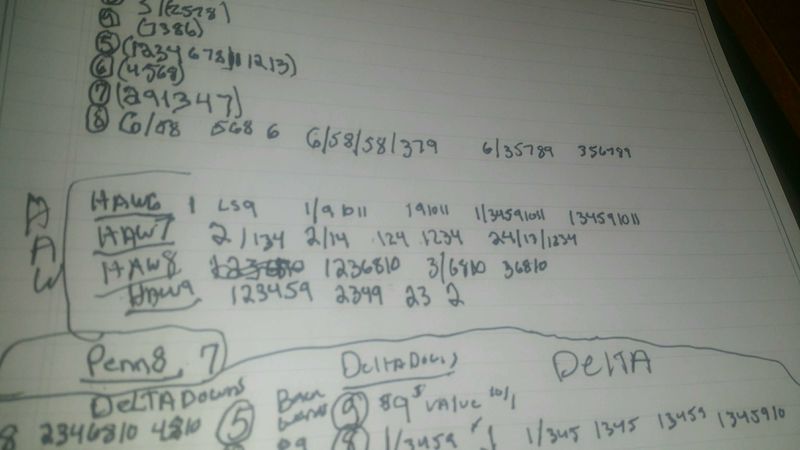 ④ 3/(2578)
(7386)
⑤ (1234 678/11 1213)
⑥ (4568)
⑦ (291347)
⑧ 6/58 568 6 6/58/58/379 6/35789 356789
HAW
HAW6 1 LS9 1/9 1011 191011 1/34591011 134591011
HAW7 2/134 2/14 124 1234 24/13/1234
HAW8 1236810 3/6810 36810
HAW9 123459 2349 23 2
Penn8, 7 DeltaDowns DeltA
DeltADowns ⑤ ⑨ 89 VALUE 10/1
8 2346810 4810 ⑧ 1/3459 1/345 1345 13459 1345910